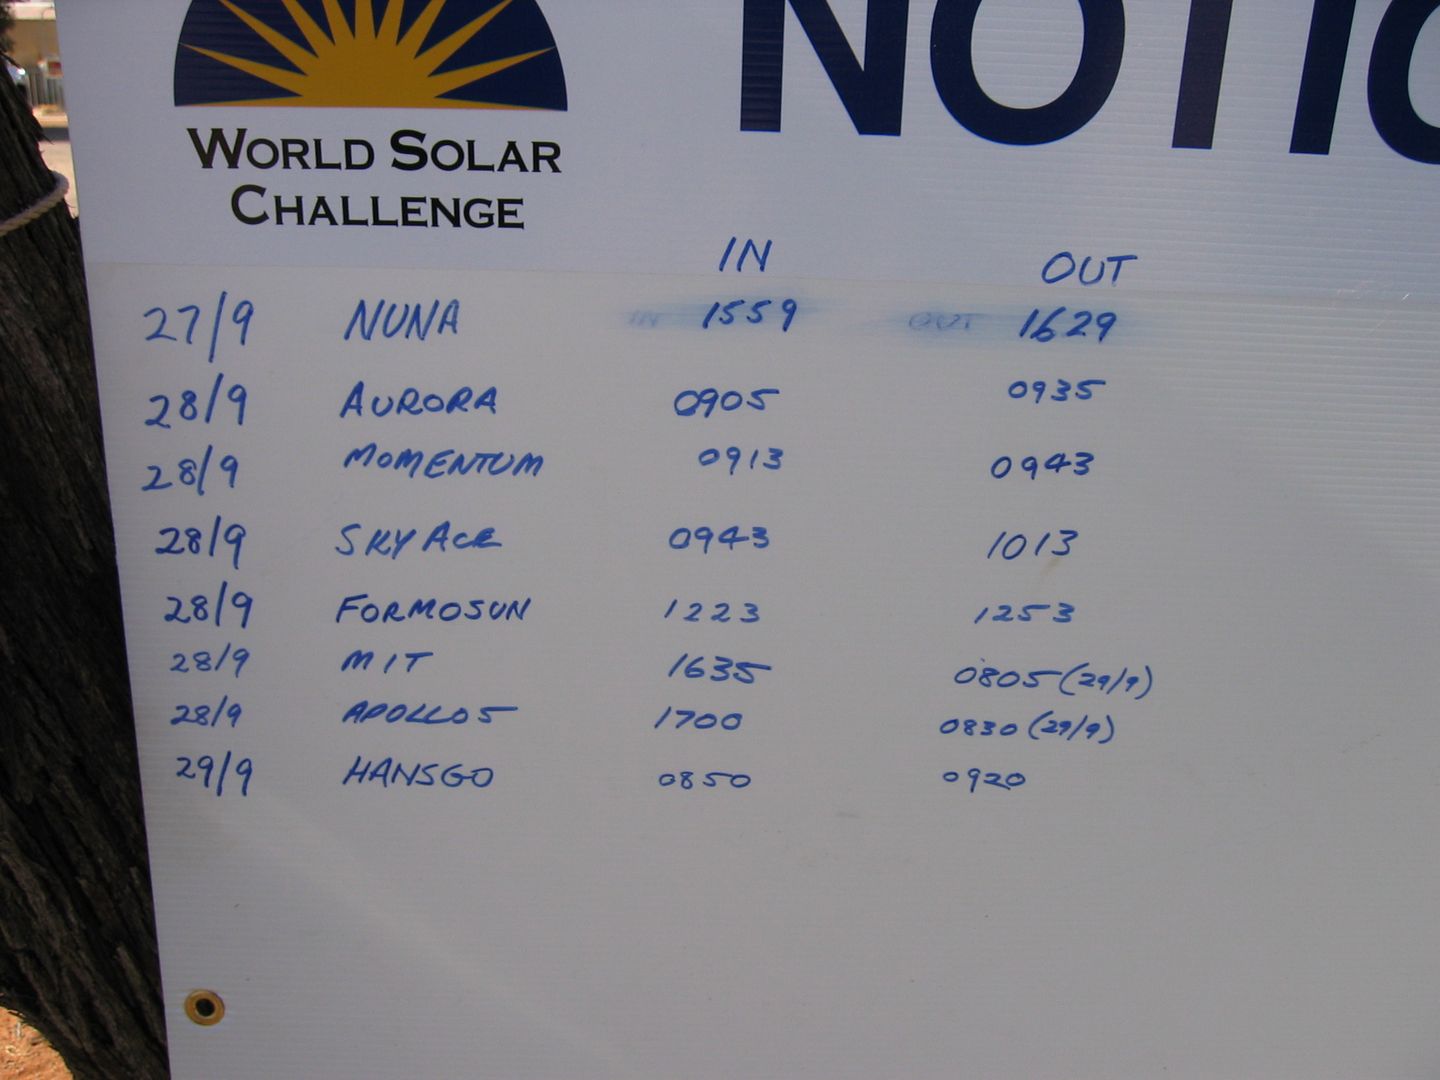 NOTIC
WORLD SOLAR
CHALLENGE
IN OUT
27/9 NUNA IN 1559 OUT 1629
28/9 AURORA 0905 0935
28/9 MOMENTUM 0913 0943
28/9 SKY ACE 0943 1013
28/9 FORMOSUN 1223 1253
28/9 MIT 1635 0805 (29/9)
28/9 APOLLO 5 1700 0830 (29/9)
29/9 HANSGO 0850 0920